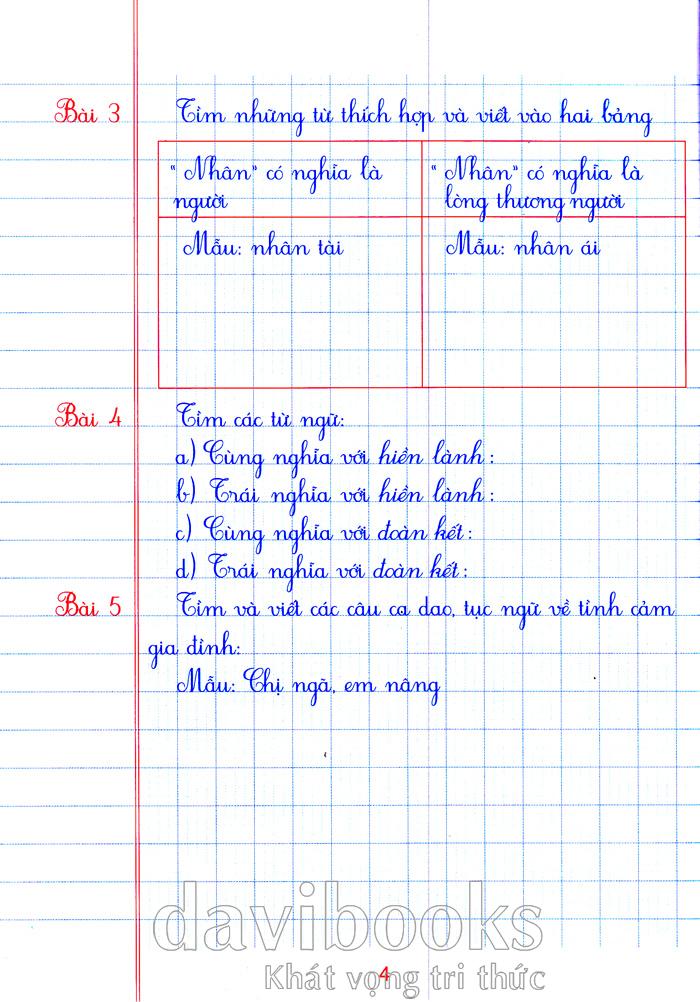 Bài 3 Tìm những từ thích hợp và viết vào hai bảng
"Nhân" có nghĩa là người
"Nhân" có nghĩa là lòng thương người
Mẫu: nhân tài
Mẫu: nhân ái
Bài 4 Tìm các từ ngữ:
a) Cùng nghĩa với hiền lành:
b) Trái nghĩa với hiền lành:
c) Cùng nghĩa với đoàn kết:
d) Trái nghĩa với đoàn kết:
Bài 5 Tìm và viết các câu ca dao, tục ngữ về tình cảm
gia đình:
Mẫu: Chị ngã, em nâng
davibooks
4
Khát vọng tri thức